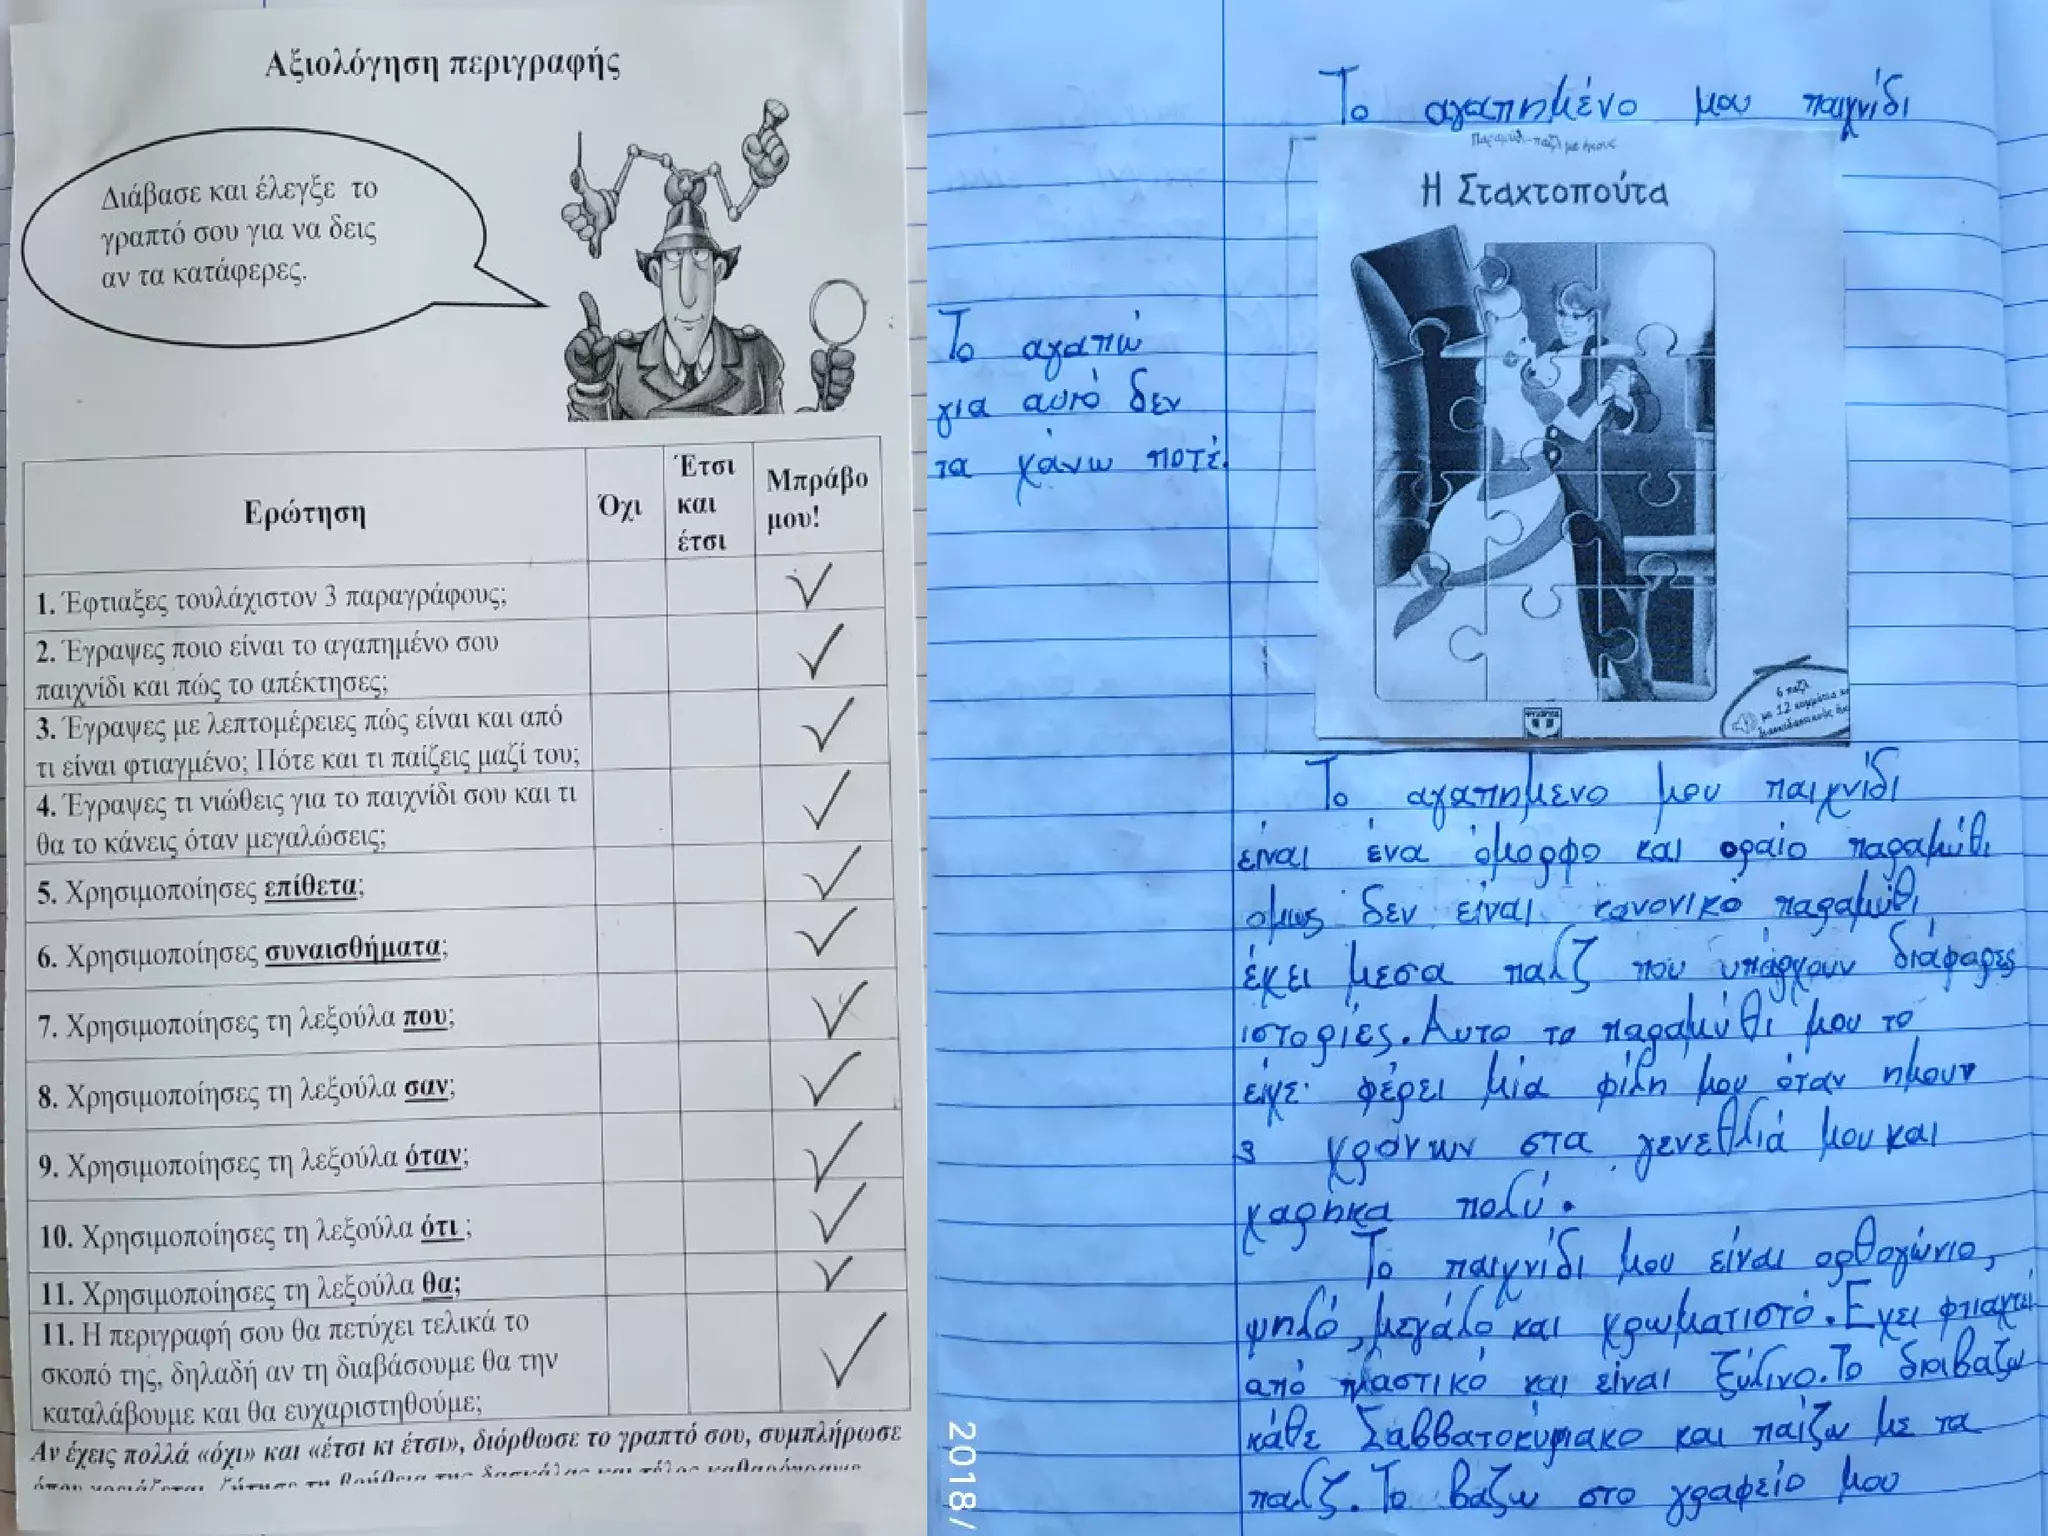 Αξιολόγηση περιγραφής
Διάβασε και έλεγξε το
γραπτό σου για να δεις
αν τα κατάφερες.
Ερώτηση
Όχι
Έτσι
και
έτσι
Μπράβο
μου!
1. Έφτιαξες τουλάχιστον 3 παραγράφους;
2. Έγραψες ποιο είναι το αγαπημένο σου
παιχνίδι και πώς το απέκτησες;
3. Έγραψες με λεπτομέρειες πώς είναι και από
τι είναι φτιαγμένο; Πότε και τι παίζεις μαζί του;
4. Έγραψες τι νιώθεις για το παιχνίδι σου και τι
θα το κάνεις όταν μεγαλώσεις;
5. Χρησιμοποίησες επίθετα;
6. Χρησιμοποίησες συναισθήματα;
7. Χρησιμοποίησες τη λεξούλα που;
8. Χρησιμοποίησες τη λεξούλα σαν;
9. Χρησιμοποίησες τη λεξούλα όταν;
10. Χρησιμοποίησες τη λεξούλα ότι ;
11. Χρησιμοποίησες τη λεξούλα θα;
11. Η περιγραφή σου θα πετύχει τελικά το
σκοπό της, δηλαδή αν τη διαβάσουμε θα την
καταλάβουμε και θα ευχαριστηθούμε;
Αν έχεις πολλά «όχι» και «έτσι κι έτσι», διόρθωσε το γραπτό σου, συμπλήρωσε
Το αγαπημένο μου παιχνίδι
Παραμύθι-παζλ με ήχους
Η Σταχτοπούτα
6 παζλ
με 12 κομμάτια
Το αγαπώ
για αυτό δεν
τα χάνω ποτέ.
Το αγαπημενο μου παιχνίδι
είναι ένα όμορφο και οραίο παραμύθι
ομως δεν είναι κανονικό παραμύθι
έχει μεσα παλζ που υπάρχουν διάφαρες
ιστορίες. Αυτο το παραμύθι μου το
είχε φέρει μία φίλη μου όταν ημουν
3 χρόνων στα γενεθλιά μου και
χαρηκα πολύ.
Το παιχνίδι μου είναι ορθογώνιο,
ψηλό, μεγάλο και χρωματιστό. Εχει φτιαχτεί
από πλαστικό και είναι ξύλινο. Το διαβαζω
κάθε Σαββατοκύριακο και παίζω με τα
παλζ. Το βαζω στο γραφείο μου
2018/